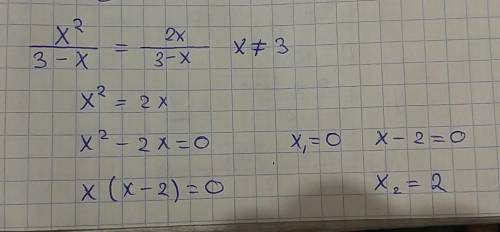 x²/(3-x) = 2x/(3-x) x≠3
x² = 2x
x² - 2x = 0 x₁ = 0 x - 2 = 0
x (x-2) = 0 x₂ = 2